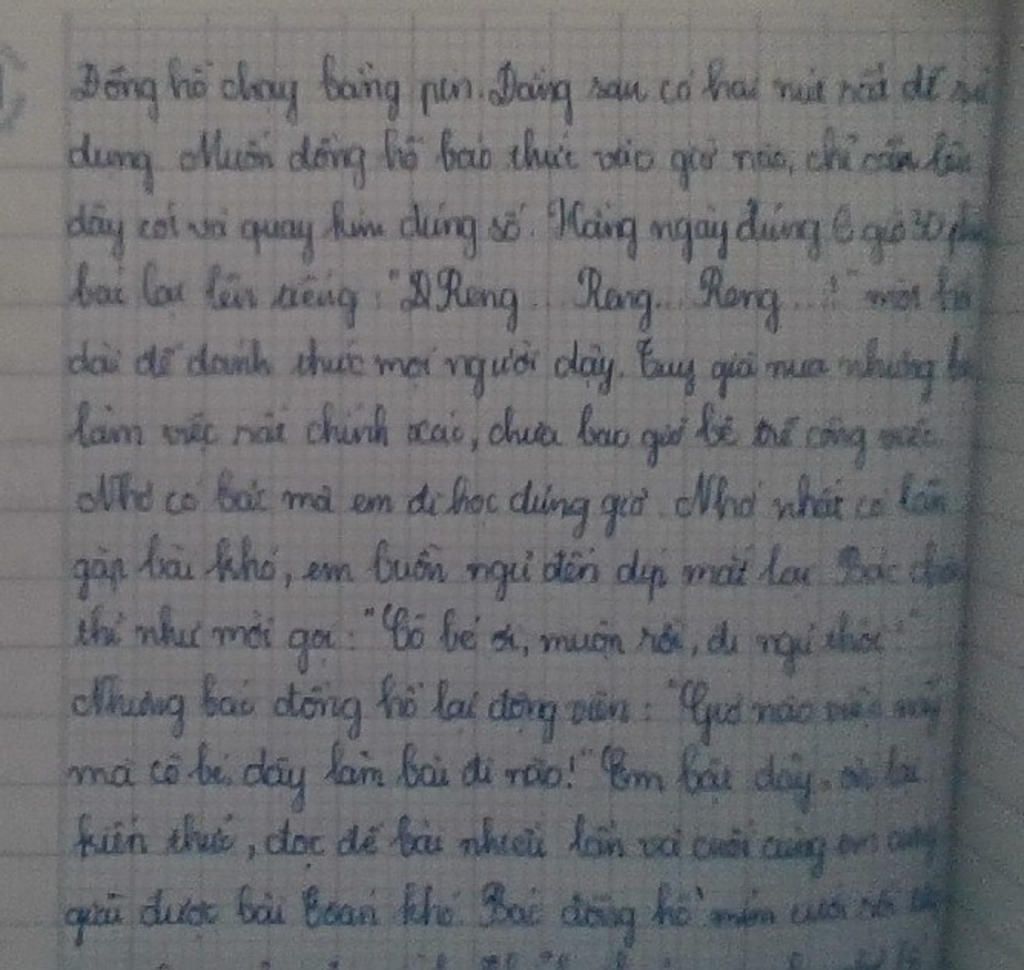 Đồng hồ chạy bằng pin. Đằng sau có hai nút rất dễ sử
dụng. Muốn đồng hồ báo thức vào giờ nào, chỉ cần lên
dây cót và quay kim đúng số. Hàng ngày đúng 6 giờ 30 phút
bác lại lên tiếng: "Reng... Reng... Reng...!" một hồi
dài để đánh thức mọi người dậy. Tuy già nua nhưng bác
làm việc rất chính xác, chưa bao giờ bê trễ công việc.
Nhờ có bác mà em đi học đúng giờ. Nhớ nhất có lần
gặp bài khó, em buồn ngủ đến díp mắt lại. Bác
thì như mời gọi: "Cô bé ơi, muộn rồi, đi ngủ thôi!"
Nhưng bác đồng hồ lại động viên: "Giờ nào việc nấy
mà cô bé, dậy làm bài đi nào!" Em bật dậy, ôn lại
kiến thức, đọc đề bài nhiều lần và cuối cùng em cũng
giải được bài toán khó. Bác đồng hồ mỉm cười rồi